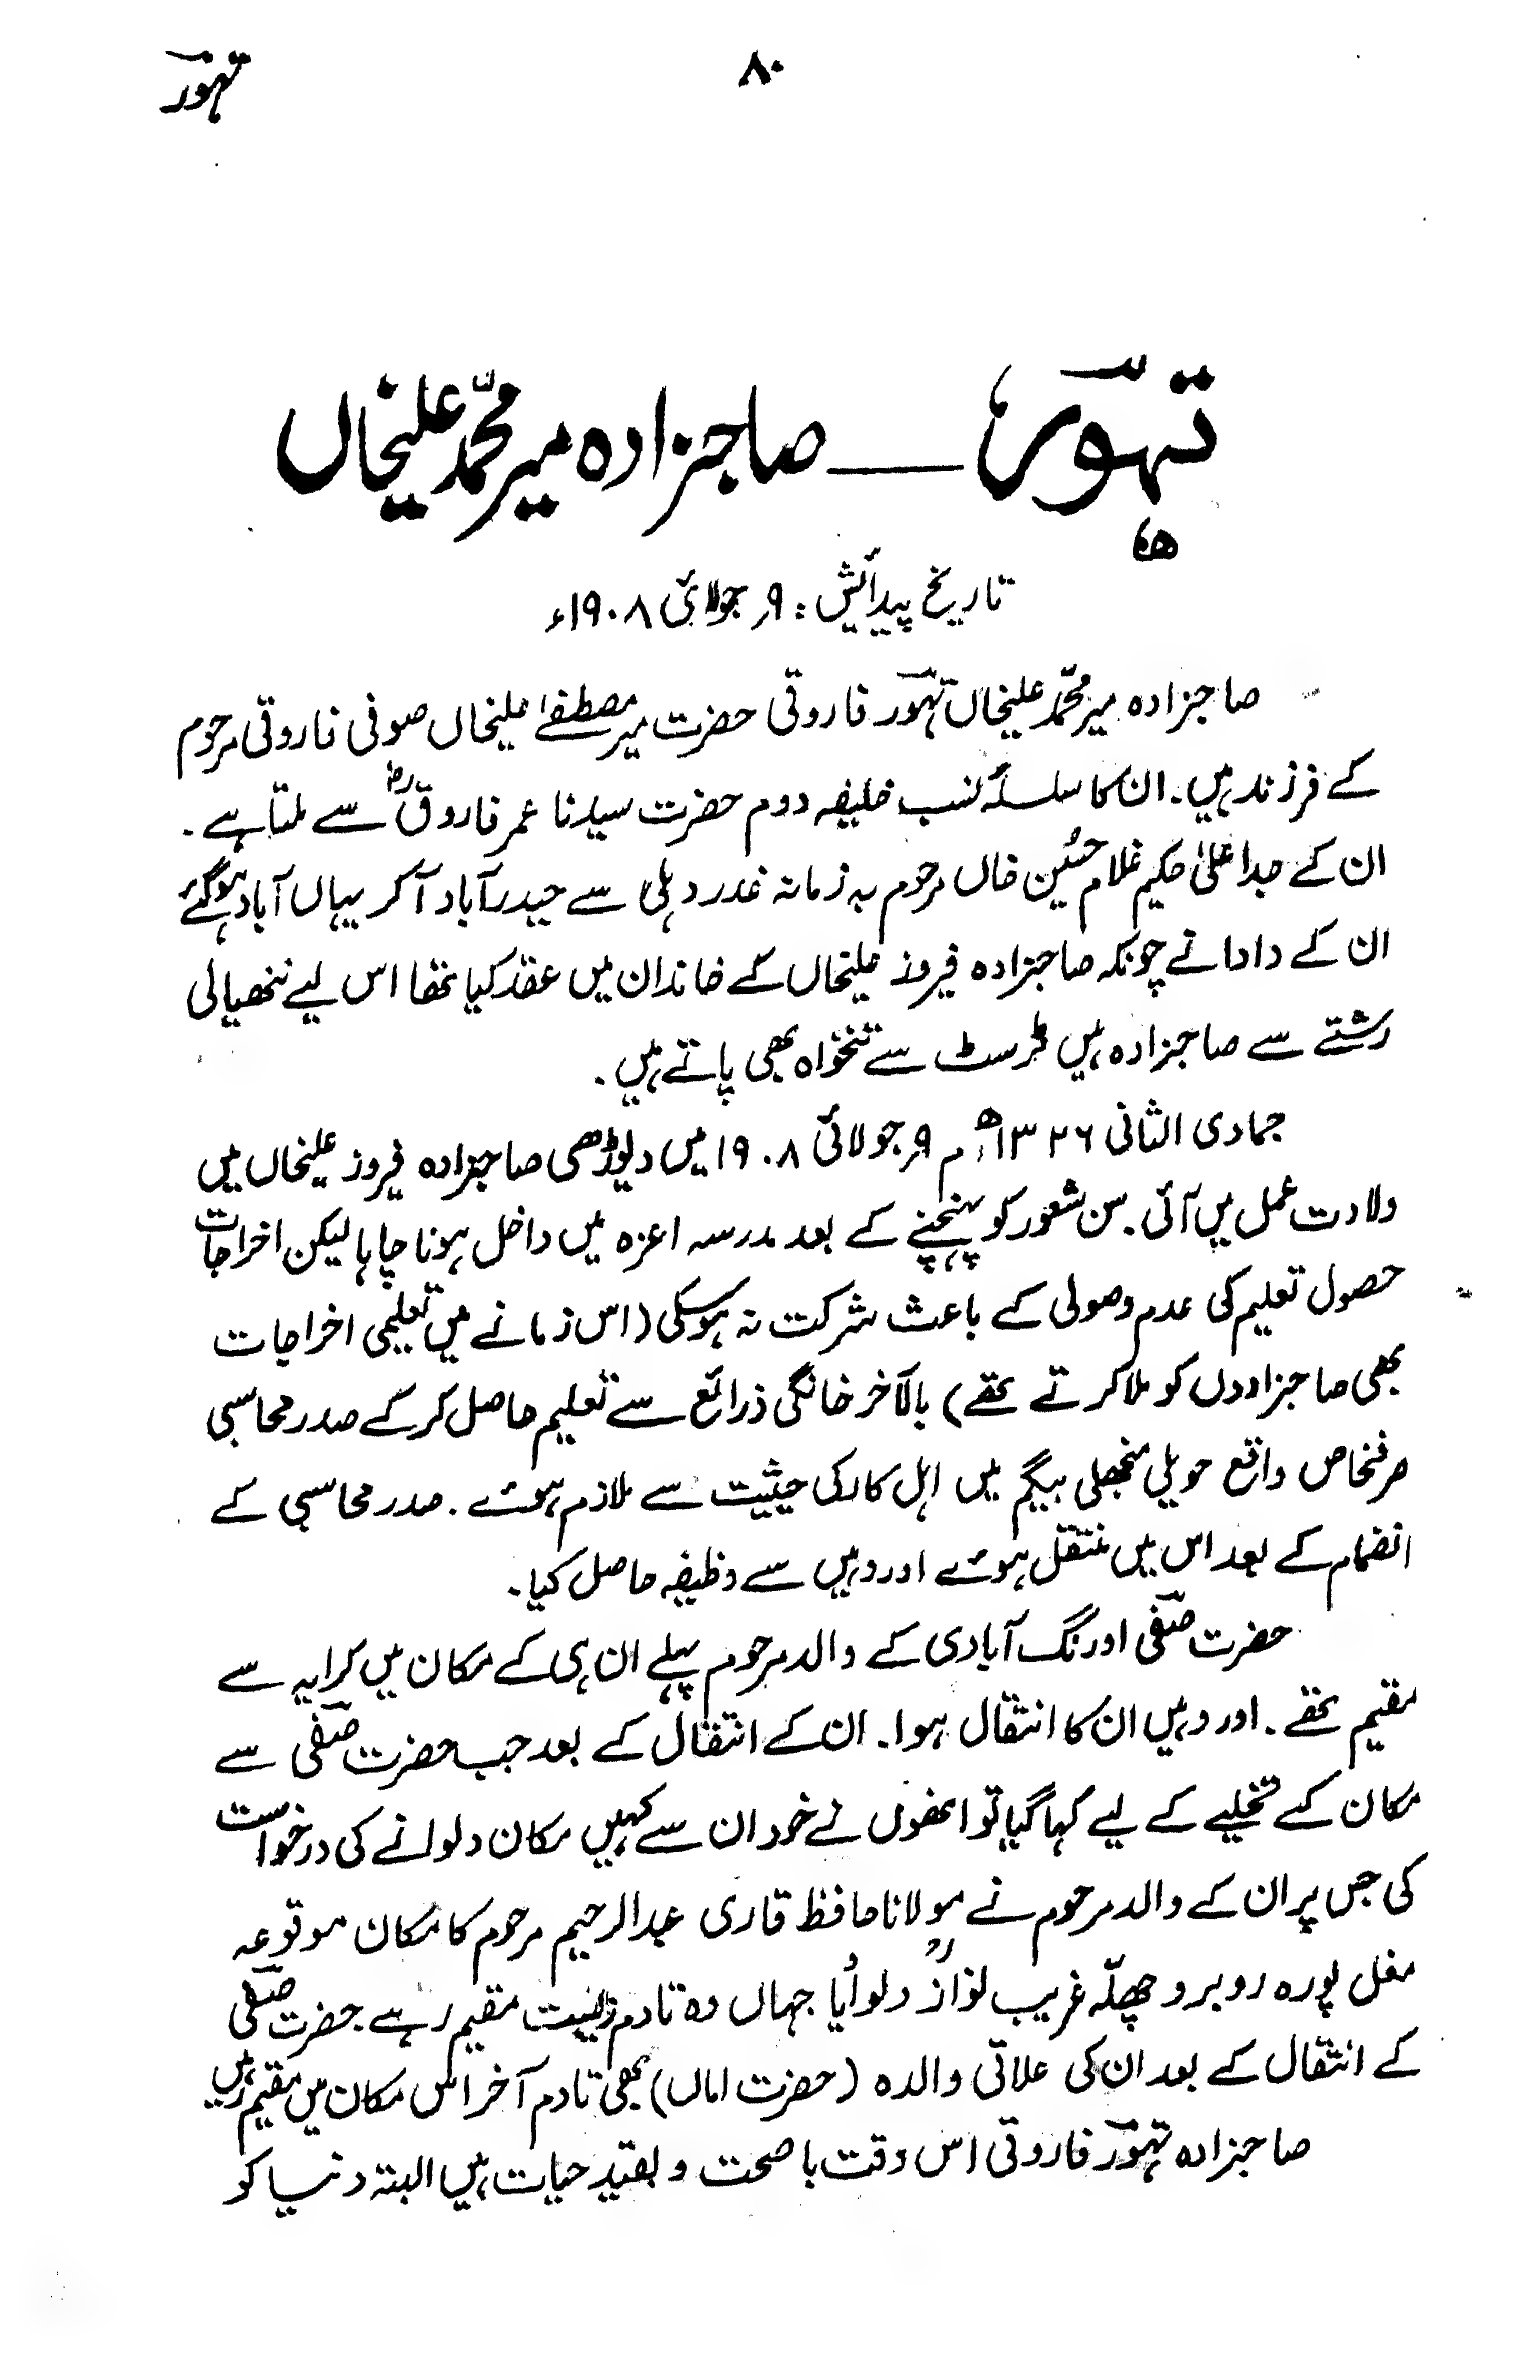 تہورؔ
۸۰
تہوّرؔ — صاحبزادہ میر محمّد علیخاں
تاریخ پیدائش : ۹؍ جولائی ۱۹۰۸ء
صاحبزادہ میر محمّد علیخاں تہوّرؔ فاروقی حضرت میر مصطفےٰ علیخاں صوفی فاروقی مرحوم
کے فرزند ہیں۔ ان کا سلسلۂ نسب خلیفہ دوم حضرت سیدنا عمر فاروقؓ سے ملتا ہے۔
ان کے جد اعلیٰ حکیم غلام حسین خاں مرحوم بہ زمانہ غدر دہلی سے حیدرآباد آکر یہاں آباد ہوگئے
ان کے دادا نے چونکہ صاحبزادہ فیروز علیخاں کے خاندان میں عقد کیا تھا اس لیے ننھیالی
رشتے سے صاحبزادہ ہیں ٹرسٹ سے تنخواہ بھی پاتے ہیں۔
جمادی الثانی ۱۳۲۶ھ م ۹؍ جولائی ۱۹۰۸ میں دیوڑھی صاحبزادہ فیروز علیخاں میں
ولادت عمل میں آئی۔ سن شعور کو پہنچنے کے بعد مدرسہ اعزہ میں داخل ہونا چاہا لیکن اخراجات
حصول تعلیم کی عدم وصولی کے باعث شرکت نہ ہوسکی (اس زمانے میں تعلیمی اخراجات
بھی صاحبزادوں کو ملا کرتے تھے) بالآخر خانگی ذرائع سے تعلیم حاصل کرکے صدر محاسبی
صرفخاص واقع حویلی منجھلی بیگم میں اہل کار کی حیثیت سے ملازم ہوئے۔ صدر محاسبی کے
انضمام کے بعد اس میں منتقل ہوئے اور وہیں سے وظیفہ حاصل کیا۔
حضرت صفیؔ اورنگ آبادی کے والد مرحوم پہلے ان ہی کے مکان میں کرایہ سے
مقیم تھے۔ اور وہیں ان کا انتقال ہوا۔ ان کے انتقال کے بعد جب حضرت صفیؔ سے
مکان کے تخلیے کے لیے کہا گیا تو انھوں نے خود ان سے کہیں مکان دلوانے کی درخواست
کی جس پر ان کے والد مرحوم نے مولانا حافظ قاری عبدالرحیم مرحوم کا مکان موقوعہ
مغل پورہ روبرو چھلّہ غریب نوازؒ دلوایا جہاں وہ تادم زیست مقیم رہے حضرت صفیؔ
کے انتقال کے بعد ان کی علاتی والدہ (حضرت اماں) بھی تادم آخر اس مکان میں مقیم رہیں
صاحبزادہ تہوّرؔ فاروقی اس وقت باصحت و بقید حیات ہیں البتہ دنیا کو